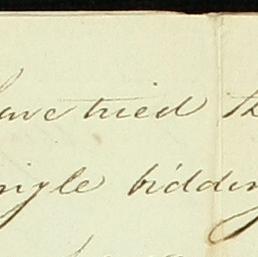 have tried th
ingle bidding